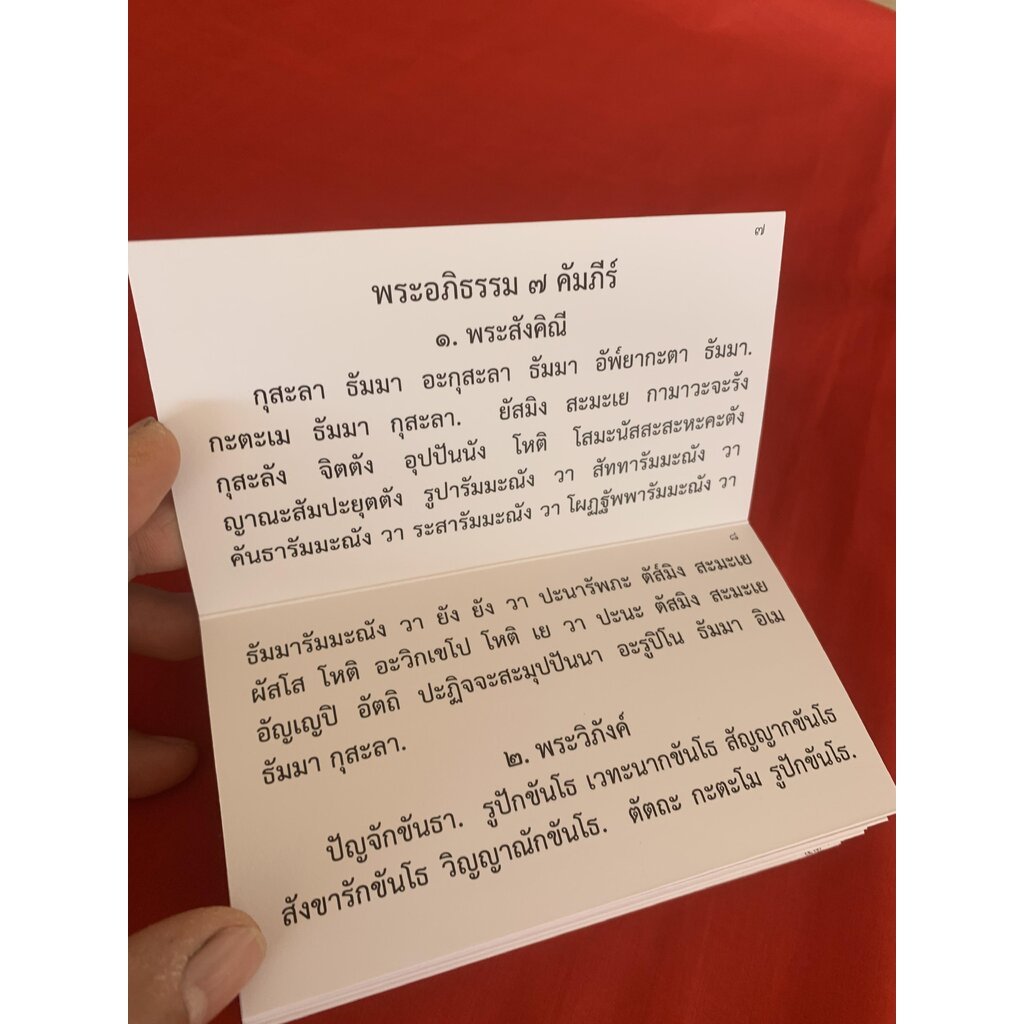 ๗
พระอภิธรรม ๗ คัมภีร์
๑. พระสังคิณี
กุสะลา ธัมมา อะกุสะลา ธัมมา อัพ๎ยากะตา ธัมมา.
กะตะเม ธัมมา กุสะลา. ยัสมิง สะมะเย กามาวะจะรัง
กุสะลัง จิตตัง อุปปันนัง โหติ โสมะนัสสะสะหะคะตัง
ญาณะสัมปะยุตตัง รูปารัมมะณัง วา สัททารัมมะณัง วา
คันธารัมมะณัง วา ระสารัมมะณัง วา โผฏฐัพพารัมมะณัง วา
๘
ธัมมารัมมะณัง วา ยัง ยัง วา ปะนารัพภะ ตัส๎มิง สะมะเย
ผัสโส โหติ อะวิกเขโป โหติ เย วา ปะนะ ตัสมิง สะมะเย
อัญเญปิ อัตถิ ปะฏิจจะสะมุปปันนา อะรูปิโน ธัมมา อิเม
ธัมมา กุสะลา.
๒. พระวิภังค์
ปัญจักขันธา. รูปักขันโธ เวทะนากขันโธ สัญญากขันโธ
สังขารักขันโธ วิญญาณักขันโธ. ตัตถะ กะตะโม รูปักขันโธ.